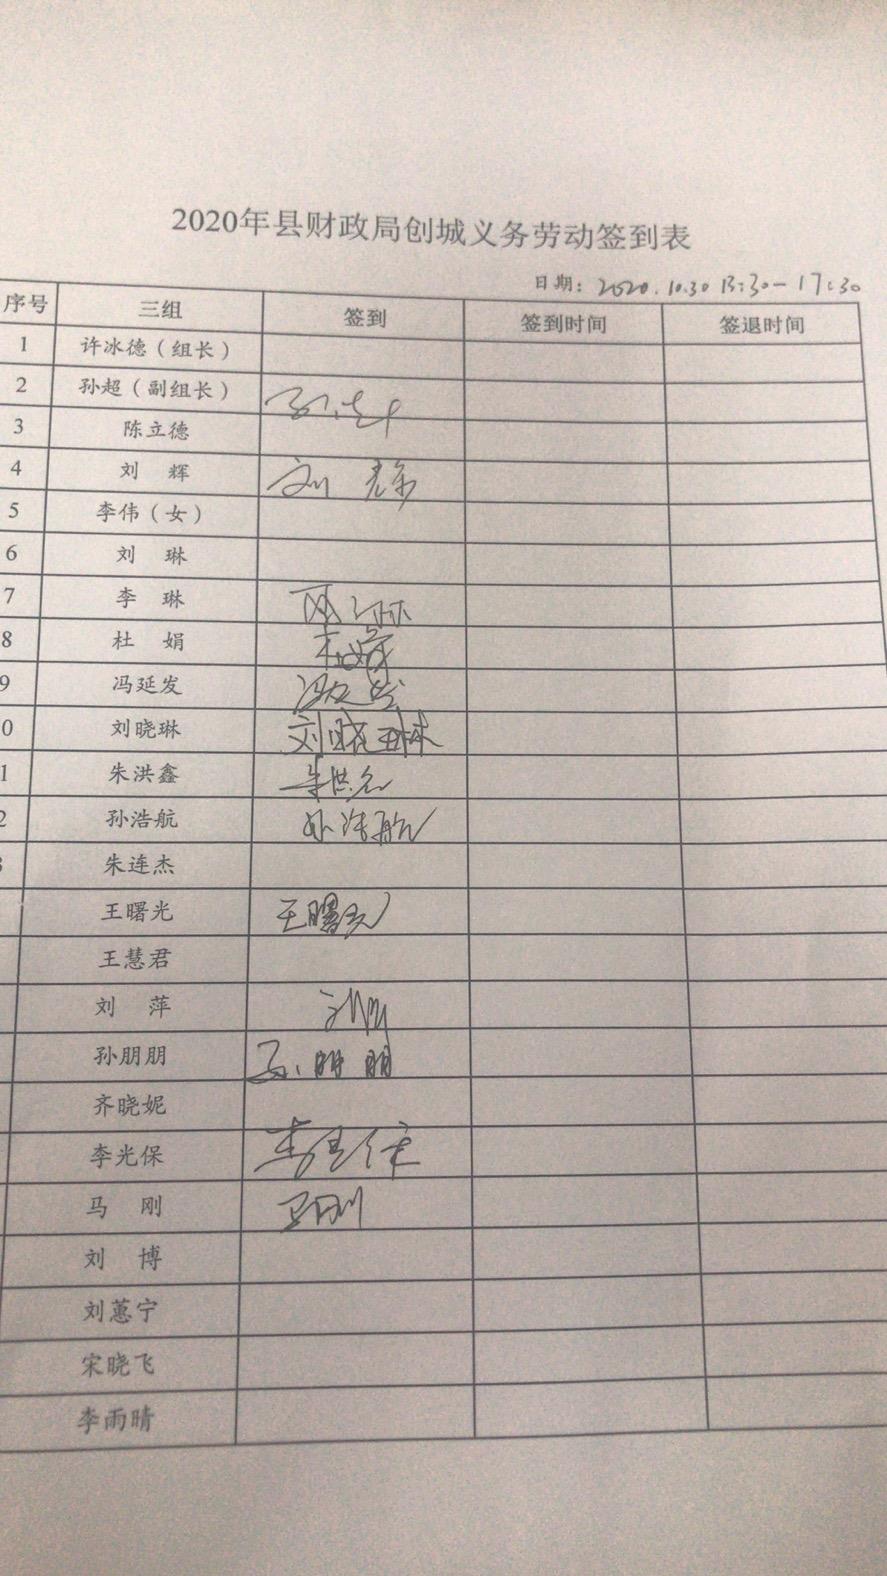 2020年县财政局创城义务劳动签到表
日期: 2020.10.30 13:30-17:30
序号 三组 签到 签到时间 签退时间
1 许冰德（组长）
2 孙超（副组长）
3 陈立德
4 刘 辉 刘
5 李伟（女）
6 刘 琳
7 李 琳
8 杜 娟
9 冯延发
0 刘晓琳 刘晓琳
1 朱洪鑫
2 孙浩航 孙浩航
3 朱连杰
王曙光 王曙光
王慧君
刘 萍
孙朋朋 孙朋朋
齐晓妮
李光保 李光保
马 刚 马刚
刘 博
刘蕙宁
宋晓飞
李雨晴